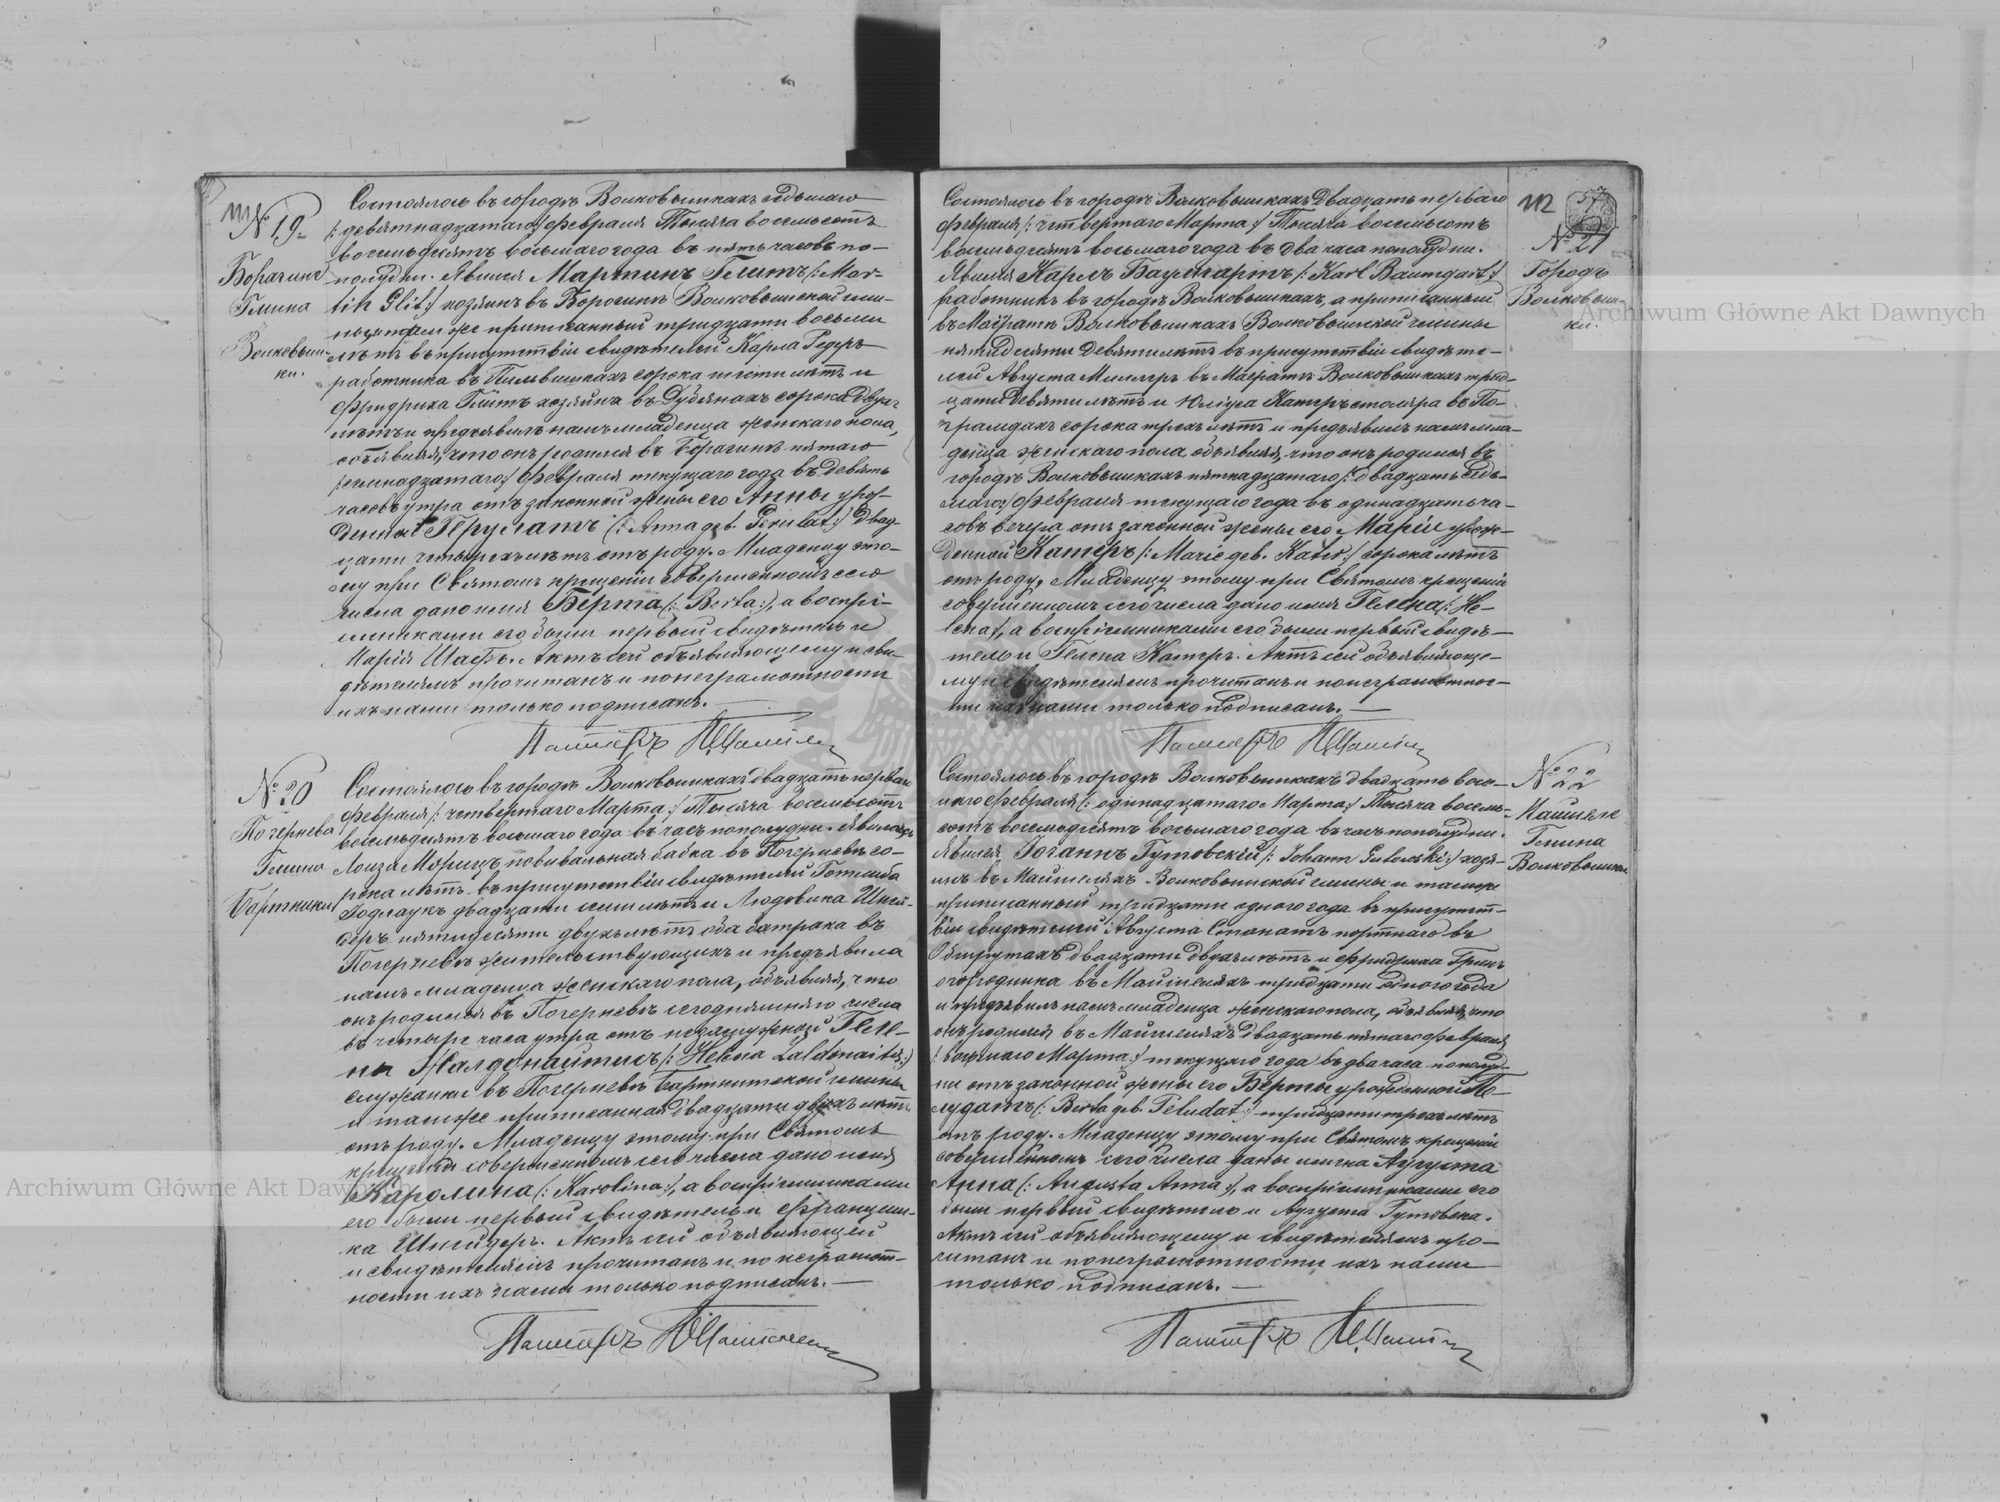 № 19
Борагинъ
Гмина
Волковыш-
ки.
Состоялось въ городѣ Волковышкахъ седьмаго
/: девятнадцатаго :/ февраля тысяча восемьсотъ
восемьдесятъ восьмаго года въ пять часовъ по-
полудни. Явился Мартинъ Глитъ /: Mar-
tin Glit :/ хозяинъ въ Борогинѣ Волковышской гми-
ны и тамже приписанный тридцати восьми
лѣтъ въ присутствіи свидѣтелей Карла Редеръ
работника въ Пильвишкахъ сорока шести лѣтъ и
Фридриха Глитъ хозяина въ Дубянахъ сорока двухъ
лѣтъ и предъявилъ намъ младенца женскаго пола,
объявляя, что онъ родился въ Борагинѣ пятаго
/: семнадцатаго :/ февраля текущаго года въ девять
часовъ утра отъ законной жены его Анны урож-
денной Перулатъ /: Anna geb. Perulat :/ двад-
цати четырехъ лѣтъ отъ роду. Младенцу это-
му при Святомъ крещеніи совершенномъ сего
числа дано имя Берта /: Berta :/, а воспрі-
емниками его были первый свидѣтель и
Марія Шафъ. Актъ сей объявляющему и сви-
дѣтелямъ прочитанъ и по неграмотности
ихъ нами только подписанъ. —
Пасторъ
№ 20
Погернева
Гмина
Бартники
Состоялось въ городѣ Волковышкахъ двадцать перваго
февраля /: четвертаго Марта :/ тысяча восемьсотъ
восемьдесятъ восьмаго года въ часъ пополудни. Явилась
Луиза Морицъ повивальная бабка въ Погерневѣ со-
рока лѣтъ въ присутствіи свидѣтелей Готлиба
двадцати семи лѣтъ и Людовика Шней-
деръ пятидесяти двухъ лѣтъ оба батрака въ
Погерневѣ жительствующихъ и предъявила
намъ младенца женскаго пола, объявляя, что
онъ родился въ Погерневѣ сегодняшняго числа
въ четыре часа утра отъ незамужной Геле-
ны Жалдонайтисъ /: Helena Zaldonaitis :/
служанки въ Погерневѣ Бартникской гмины
и тамже приписанная двадцати двухъ лѣтъ
отъ роду. Младенцу этому при Святомъ
крещеніи совершенномъ сего числа дано имя
Каролина /: Karolina :/, а воспріемниками
его были первый свидѣтель и Францис-
ка Шнейдеръ. Актъ сей объявляющей
и свидѣтелямъ прочитанъ и по неграмот-
ности ихъ нами только подписанъ. —
Пасторъ
112
57
№ 21
Городъ
Волковыш-
ки.
Состоялось въ городѣ Волковышкахъ двадцать перваго
февраля /: четвертаго Марта :/ тысяча восемьсотъ
восемьдесятъ восьмаго года въ два часа пополудни.
Явился Карлъ Баумгартъ /: Karl Baumgart :/
работникъ въ городѣ Волковышкахъ, а приписанный
въ Маіратѣ Волковышкахъ Волковышской гмины
пятидесяти девяти лѣтъ въ присутствіи свидѣте-
лей Августа Миллеръ въ Маіратѣ Волковышкахъ трид-
цати девяти лѣтъ и Юліуса Катеръ столяра въ По-
грамдахъ сорока трехъ лѣтъ и предъявилъ намъ мла-
денца женскаго пола, объявляя, что онъ родился въ
городѣ Волковышкахъ пятнадцатаго /: двадцать седь-
маго :/ февраля текущаго года въ одинадцать ча-
совъ вечера отъ законной жены его Маріи урож-
денной Катеръ /: Marie geb. :/ сорока лѣтъ
отъ роду. Младенцу этому при Святомъ крещеніи
совершенномъ сего числа дано имя Гелена /: He-
lena :/, а воспріемниками его были первый свидѣ-
тель и Гелена Катеръ. Актъ сей объявляюще-
му и свидѣтелямъ прочитанъ и по неграмотнос-
ти ихъ нами только подписанъ. —
Пасторъ
№ 22
Майшеле
Гмина
Волковышки
Состоялось въ городѣ Волковышкахъ двадцать вось-
маго февраля /: одинадцатаго Марта :/ тысяча восемь-
сотъ восемьдесятъ восьмаго года въ часъ пополудни.
Явился Іоганнъ Гутовскій /: Johann Gutowski :/ хозя-
инъ въ Майшеляхъ Волковышской гмины и тамже
приписанный тридцати одного года въ присутст-
віи свидѣтелей Августа портнаго въ
Обшрутахъ двадцати двухъ лѣтъ и Фридриха Гринъ
огородника въ Майшеляхъ тридцати одного года
и предъявилъ намъ младенца женскаго пола, объявляя, что
онъ родился въ Майшеляхъ двадцать пятаго февраля
/: восьмаго Марта :/ текущаго года въ два часа пополуд-
ни отъ законной жены его Берты урожденной Пе-
лудатъ /: Berta geb. Peludat :/ тридцати трехъ лѣтъ
отъ роду. Младенцу этому при Святомъ крещеніи
совершенномъ сего числа даны имена Августа
Анна /: Augusta Anna :/, а воспріемниками его
были первый свидѣтель и Августа Гутовска.
Актъ сей объявляющему и свидѣтелямъ про-
читанъ и по неграмотности ихъ нами
только подписанъ. —
Пасторъ
Archiwum Główne Akt Dawnych
Archiwum Główne Akt Dawnych